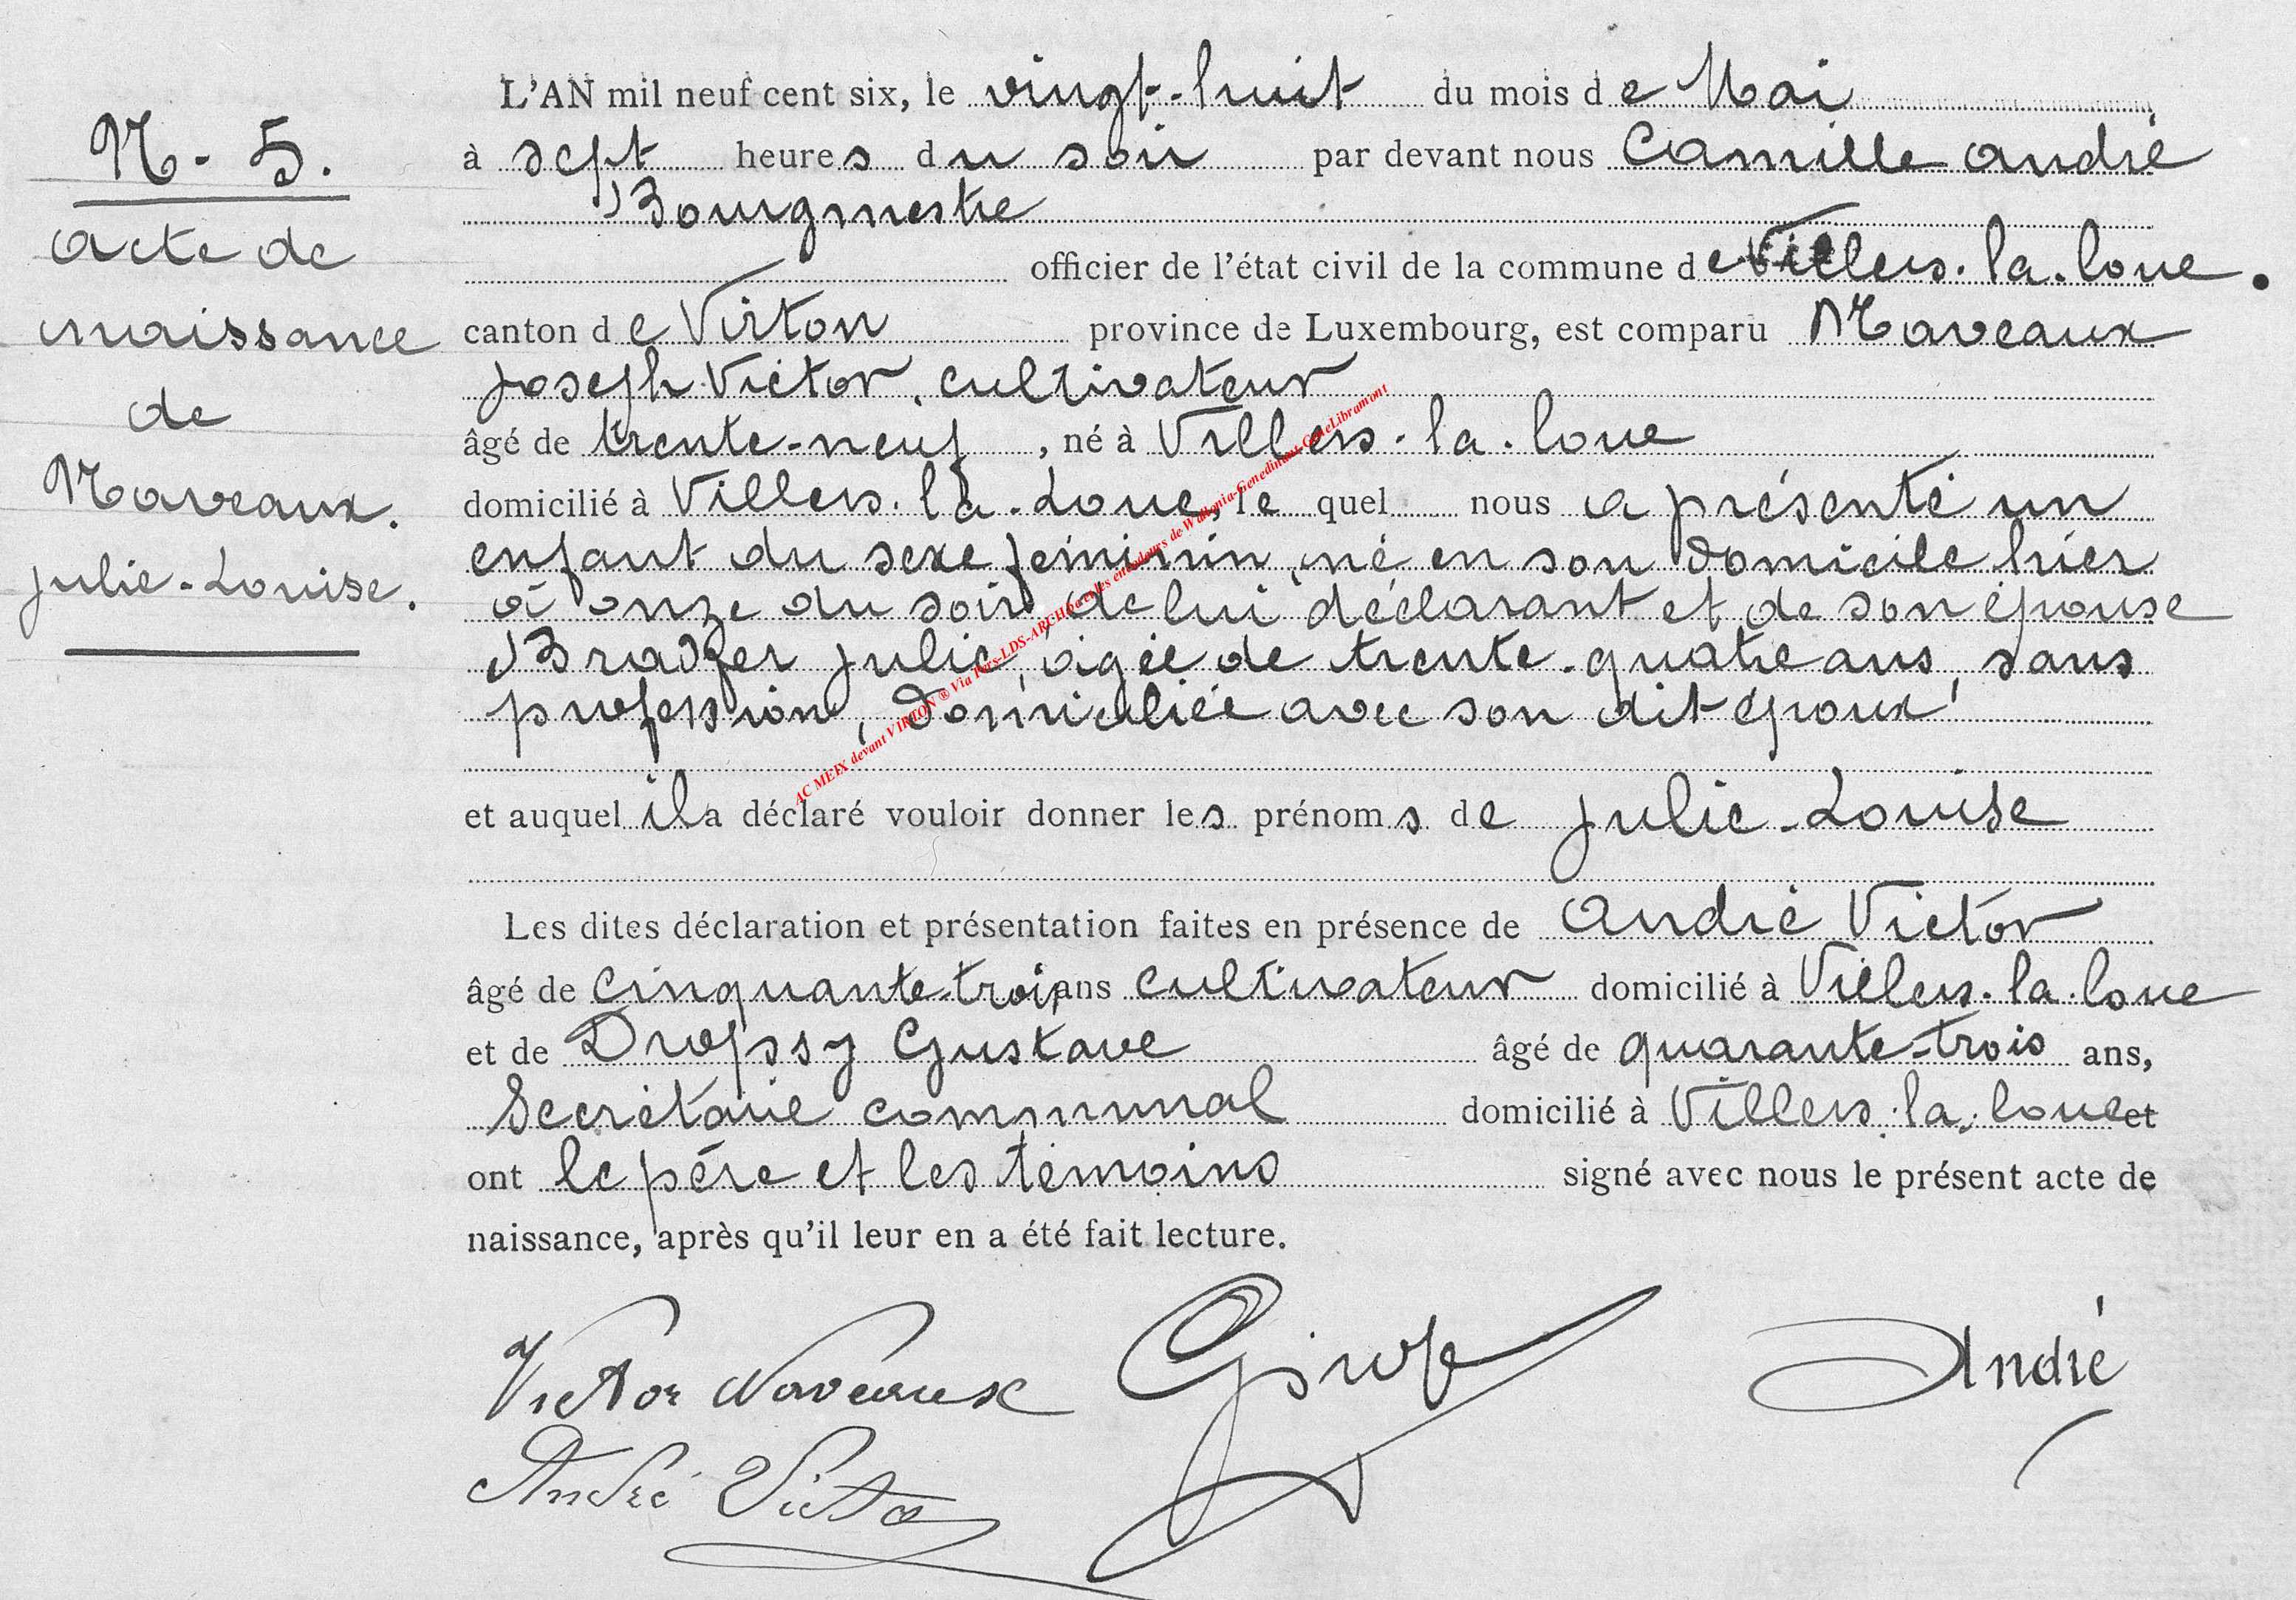 N. 5.
acte de
naissance
de
Naveaux.
Julie-Louise.
L'AN mil neuf cent six, le vingt-huit du mois de Mai
à sept heures du soir par devant nous Camille André
Bourgmestre
officier de l'état civil de la commune de Villers-la-loue.
canton de Virton province de Luxembourg, est comparu Naveaux
Joseph Victor, cultivateur
âgé de trente-neuf, né à Villers-la-loue
domicilié à Villers-la-Loue, le quel nous a présenté un
enfant du sexe féminin, né en son domicile hier
à onze du soir, de lui déclarant et de son épouse
Bradfer Julie, âgée de trente-quatre ans, sans
profession, domiciliée avec son dit époux
et auquel il a déclaré vouloir donner les prénoms de Julie-Louise
Les dites déclaration et présentation faites en présence de André Victor
âgé de cinquante-trois ans cultivateur domicilié à Villers-la-loue
et de Dropsy Gustave âgé de quarante-trois ans,
Secrétaire communal domicilié à Villers-la-loue et
ont le père et les témoins signé avec nous le présent acte de
naissance, après qu'il leur en a été fait lecture.
Victor Naveaux André
André Victor
AC MEIX devant VIRTON ® Via Pers-LDS-ARCH